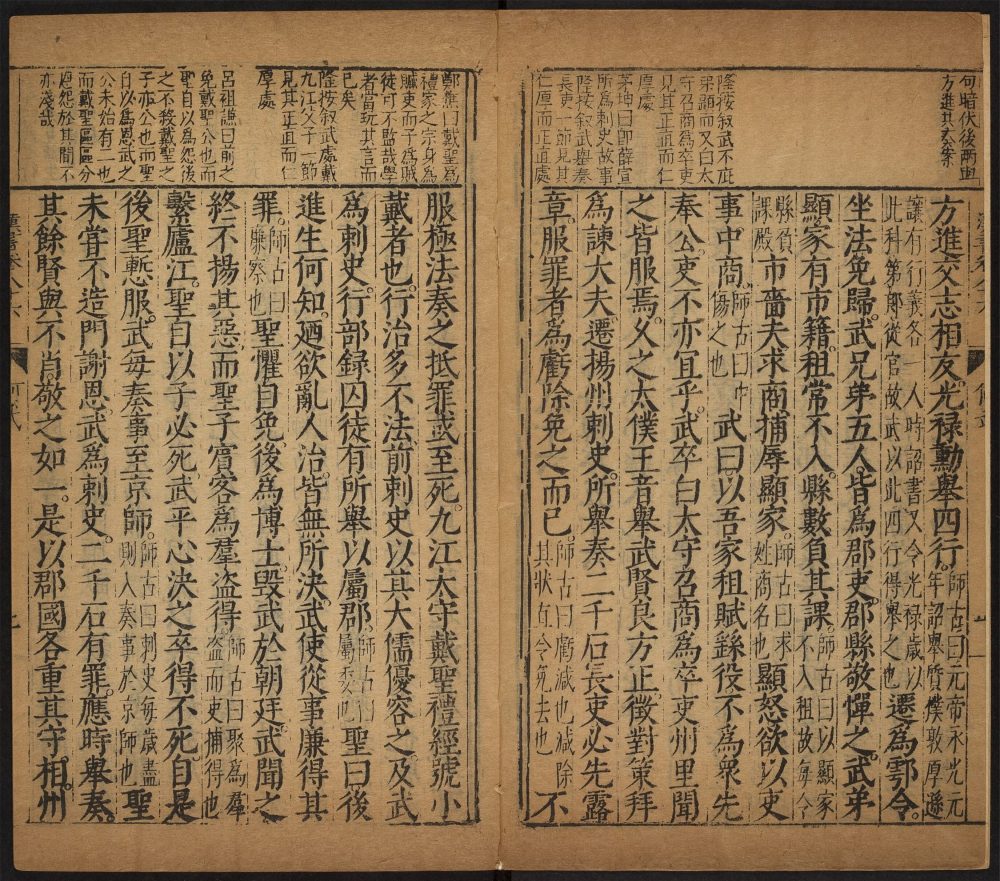 句暗伏後兩曲
方進其奏案
隆按叙武不庇
弟顯而又白太
守召商為卒吏
見其正直而仁
厚處
茅坤曰即薛宣
所為刺史故事
隆按叙武舉奏
長吏一節見其
仁厚而正直處
方進交志相友光祿勳舉四行師古曰元帝永光元年詔舉質樸敦厚遜
讓有行義各一人時詔書又令光祿歲以此科第郎從官故武以此四行得舉之也遷為鄠令
坐法免歸武兄弟五人皆為郡吏郡縣敬憚之武弟
顯家有市籍租常不入縣數負其課師古曰以顯家不入租故每令
縣負課殿市嗇夫求商捕辱顯家師古曰求姓商名也顯怒欲以吏
事中商師古曰中傷之也武曰以吾家租賦繇役不為衆先
奉公吏不亦宜乎武卒白太守召商為卒吏州里聞
之皆服焉乆之太僕王音舉武賢良方正徵對策拜
為諫大夫遷揚州刺史所舉奏二千石長吏必先露
章服罪者為虧除免之而已師古曰虧減也減除其狀直令免去也不
鄭樵曰戴聖為
禮家之宗身為
贓吏而子為賊
徒可不監哉學
者當玩其言而
已矣
隆按叙武處戴
九江父子一節
見其正直而仁
厚處
呂祖謙曰前之
免戴聖公也而
聖自以為怨後
之不殺戴聖之
子亦公也而聖
自以為恩武之
公未始有二也
而戴聖區區分
恩怨於其間不
亦淺哉
服極法奏之抵罪或至死九江太守戴聖禮經號小
戴者也行治多不法前刺史以其大儒優容之及武
為刺史行部録囚徒有所舉以屬郡師古曰屬委也聖曰後
進生何知廼欲亂人治皆無所決武使從事廉得其
罪師古曰廉察也聖懼自免後為博士毀武於朝廷武聞之
終不揚其惡而聖子賓客為羣盗得師古曰聚為羣盗而吏捕得也
繫廬江聖自以子必死武平心決之卒得不死自是
後聖慙服武每奏事至京師師古曰刺史每歲盡則入奏事於京師也聖
未嘗不造門謝恩武為刺史二千石有罪應時舉奏
其餘賢與不肖敬之如一是以郡國各重其守相州